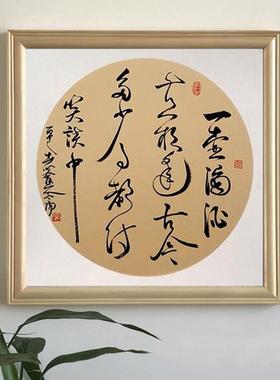 一壶濁酒
喜相逢古今
多少事都付
笑談中